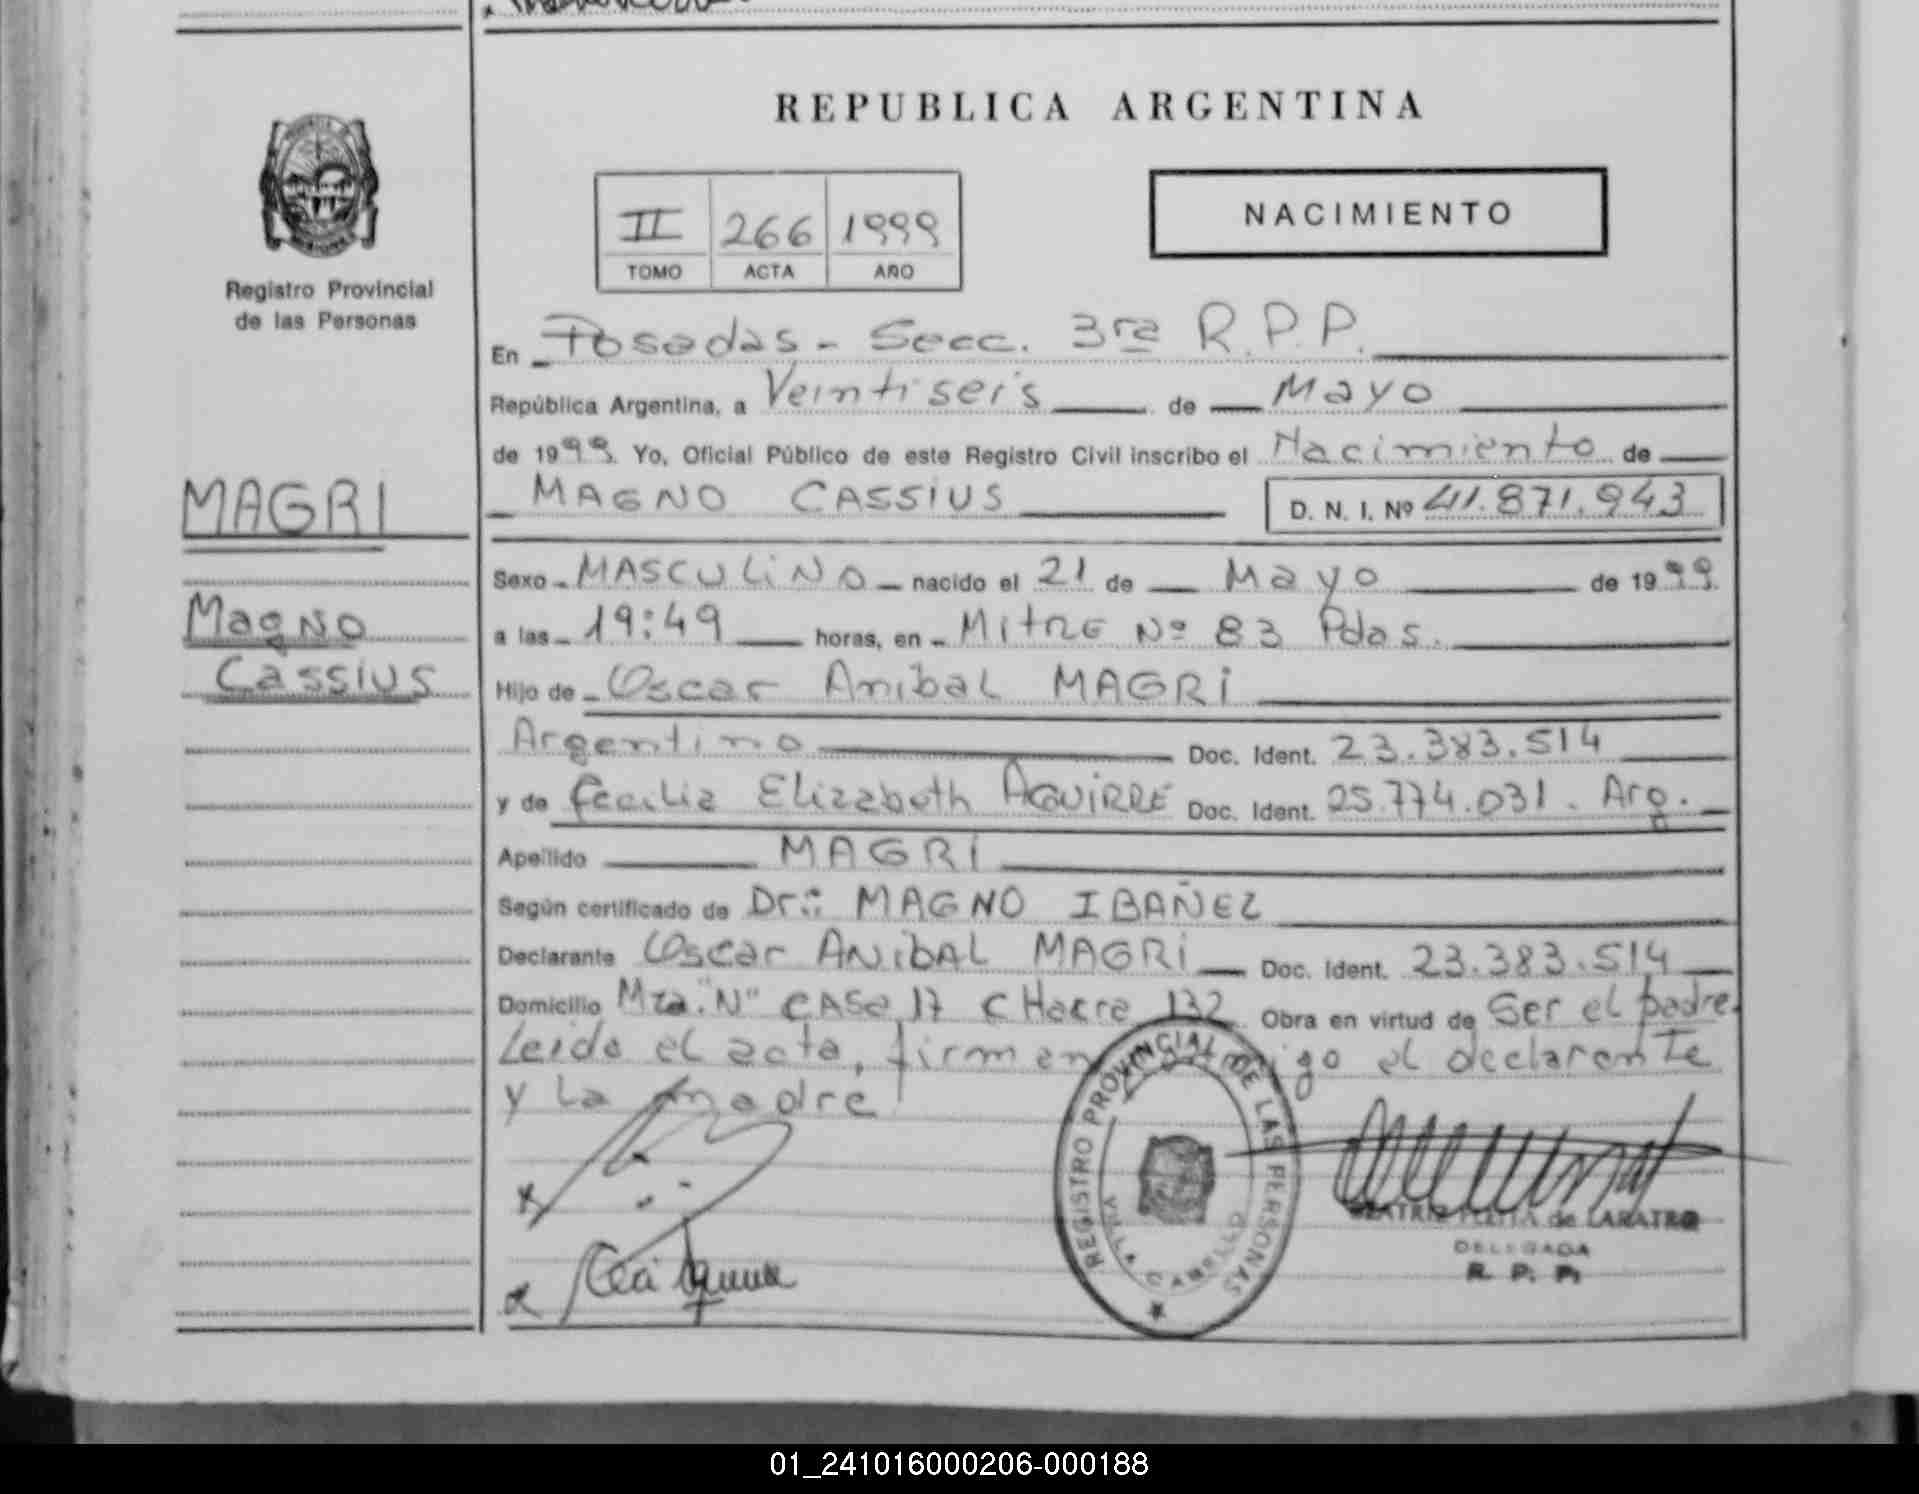 REPUBLICA ARGENTINA
II 266 1999
TOMO ACTA AÑO
NACIMIENTO
Registro Provincial
de las Personas
MAGRI
Magno
Cassius
En Posadas - Secc. 3ra R.P.P.
República Argentina, a Veintiseis de Mayo
de 1999. Yo, Oficial Público de este Registro Civil inscribo el Nacimiento de
MAGNO CASSIUS D. N. I. Nº 41.871.943
Sexo MASCULINO nacido el 21 de Mayo de 1999.
a las 19:49 horas, en Mitre Nº 83 Pdas.
Hijo de Oscar Anibal MAGRI
Argentino Doc. Ident. 23.383.514
y de Cecilia Elizabeth AGUIRRE Doc. Ident. 25.774.031. Arg.
Apellido MAGRI
Según certificado de Dr.: MAGNO IBAÑEZ
Declarante Oscar ANIBAL MAGRI Doc. Ident. 23.383.514
Domicilio Mza. "N" CASA 17 CHacra 132 Obra en virtud de Ser el padre.
Leida el acta, firman conmigo el declarante
y La madre
REGISTRO PROVINCIAL DE LAS PERSONAS
VILLA CABELLO
de LABATRO
DELEGADA
R. P. P.
01_241016000206-000188